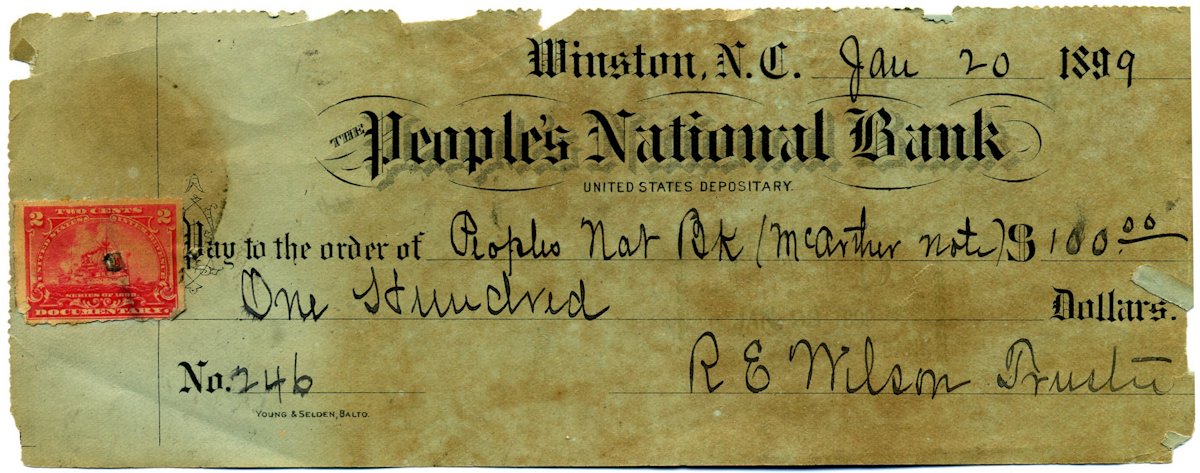 Winston, N.C. Jan 20 1899
THE People's National Bank
UNITED STATES DEPOSITARY.
2 TWO CENTS 2
SERIES OF 1898
DOCUMENTARY.
Pay to the order of Peoples Nat Bk (McArther note) $ 100.00
One Hundred Dollars.
No. 246 R E Wilson Trustee
YOUNG & SELDEN, BALTO.